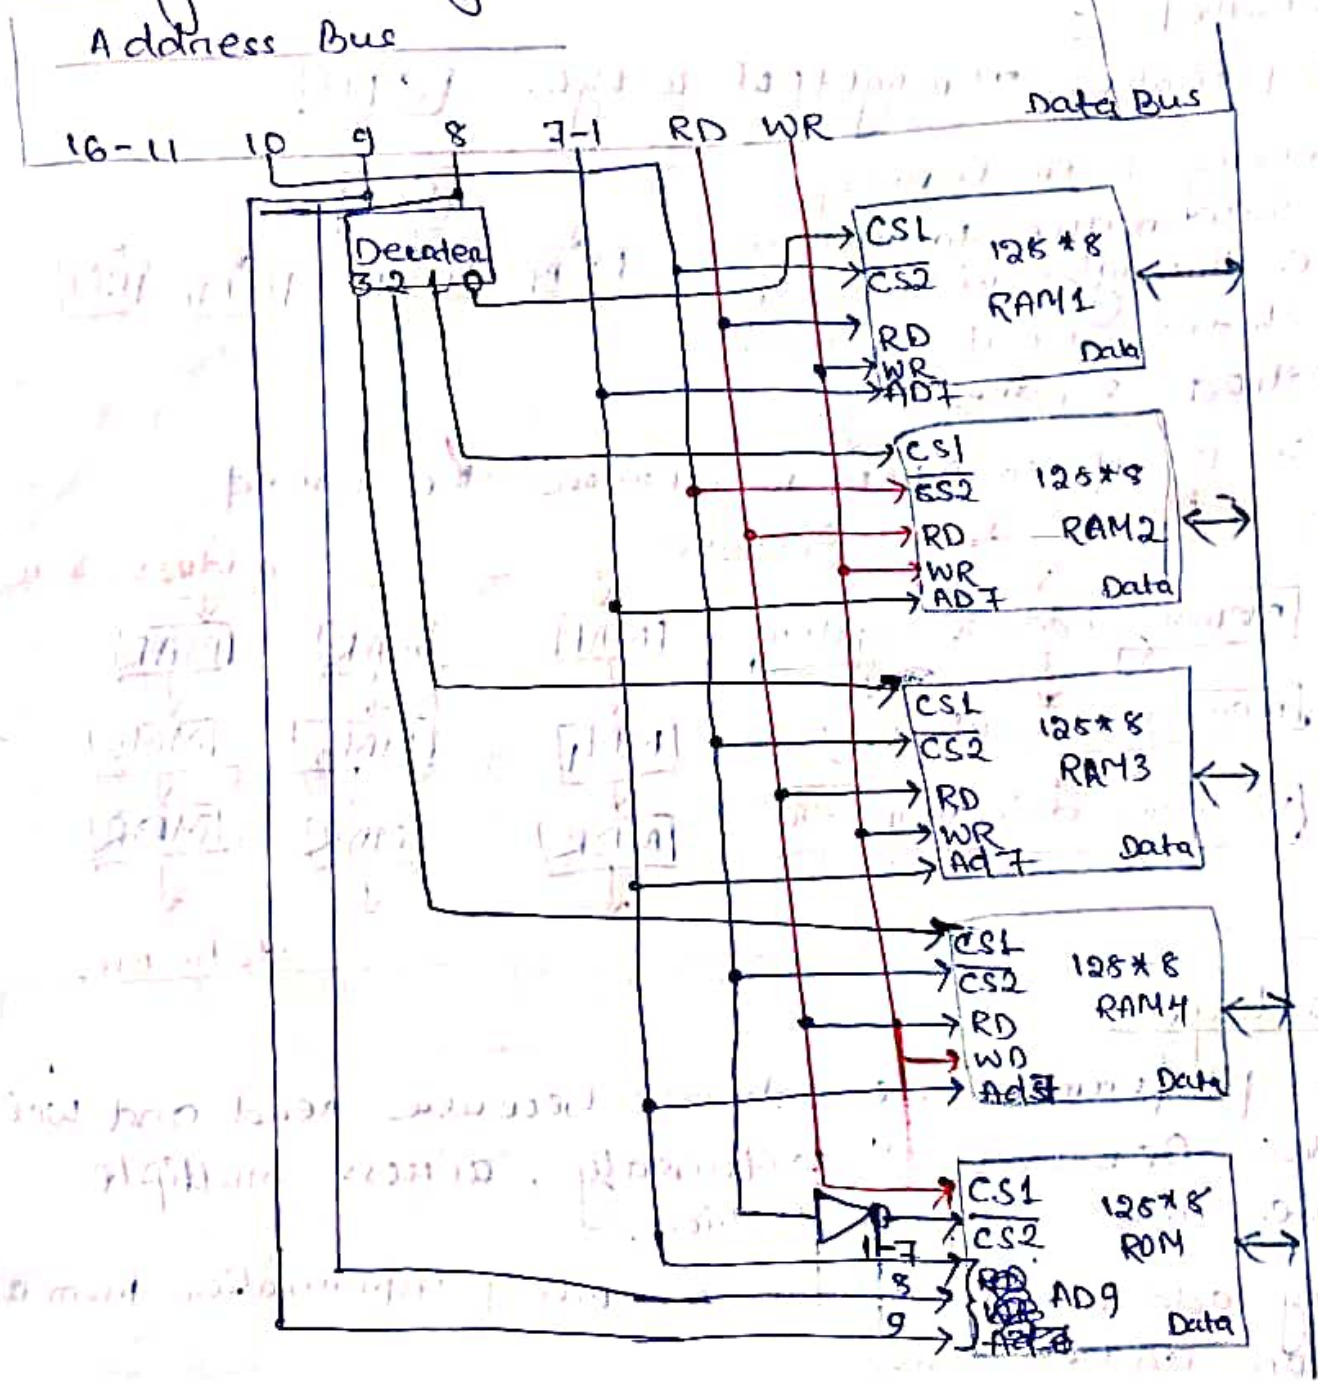 Address Bus
Data Bus
16-11 10 9 8 7-1 RD WR
Decoder
3 2 1 0
CS1
CS2
RD
WR
AD7
128*8
RAM1
Data
CS1
CS2
RD
WR
AD7
128*8
RAM2
Data
CS1
CS2
RD
WR
Ad7
128*8
RAM3
Data
CS1
CS2
RD
WD
Ad7
128*8
RAM4
Data
CS1
CS2
128*8
ROM
1-7
8
9
AD9
Data